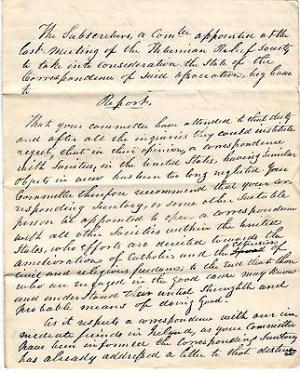 The Subscribers, a Comtee appointed at the
last Meeting of the Hibernian Relief Society
to take into consideration the State of the
Correspondence of Said Association, beg leave
to
Report.
That your committee have attended to that duty
and after all the inquiries they could institute
regret, that in their opinion, a correspondence
with Societies, in the United States, having Similar
objects in view has been too long neglected. Your
Committee therefore recommend that your cor-
responding Secretary, or some other suitable
person be appointed to open a correspondence
with all other Societies within the United
States, whose efforts are directed towards the
amelioration of Catholics and the
civil and religious freedom; to the end that those
who are engaged in the good cause may know
and understand their united Strength and
probable means of doing good.
As it respects a correspondence with our im-
mediate friends in Ireland, as your Committee
have been informed the Corresponding Secretary
has already addressed a letter to that